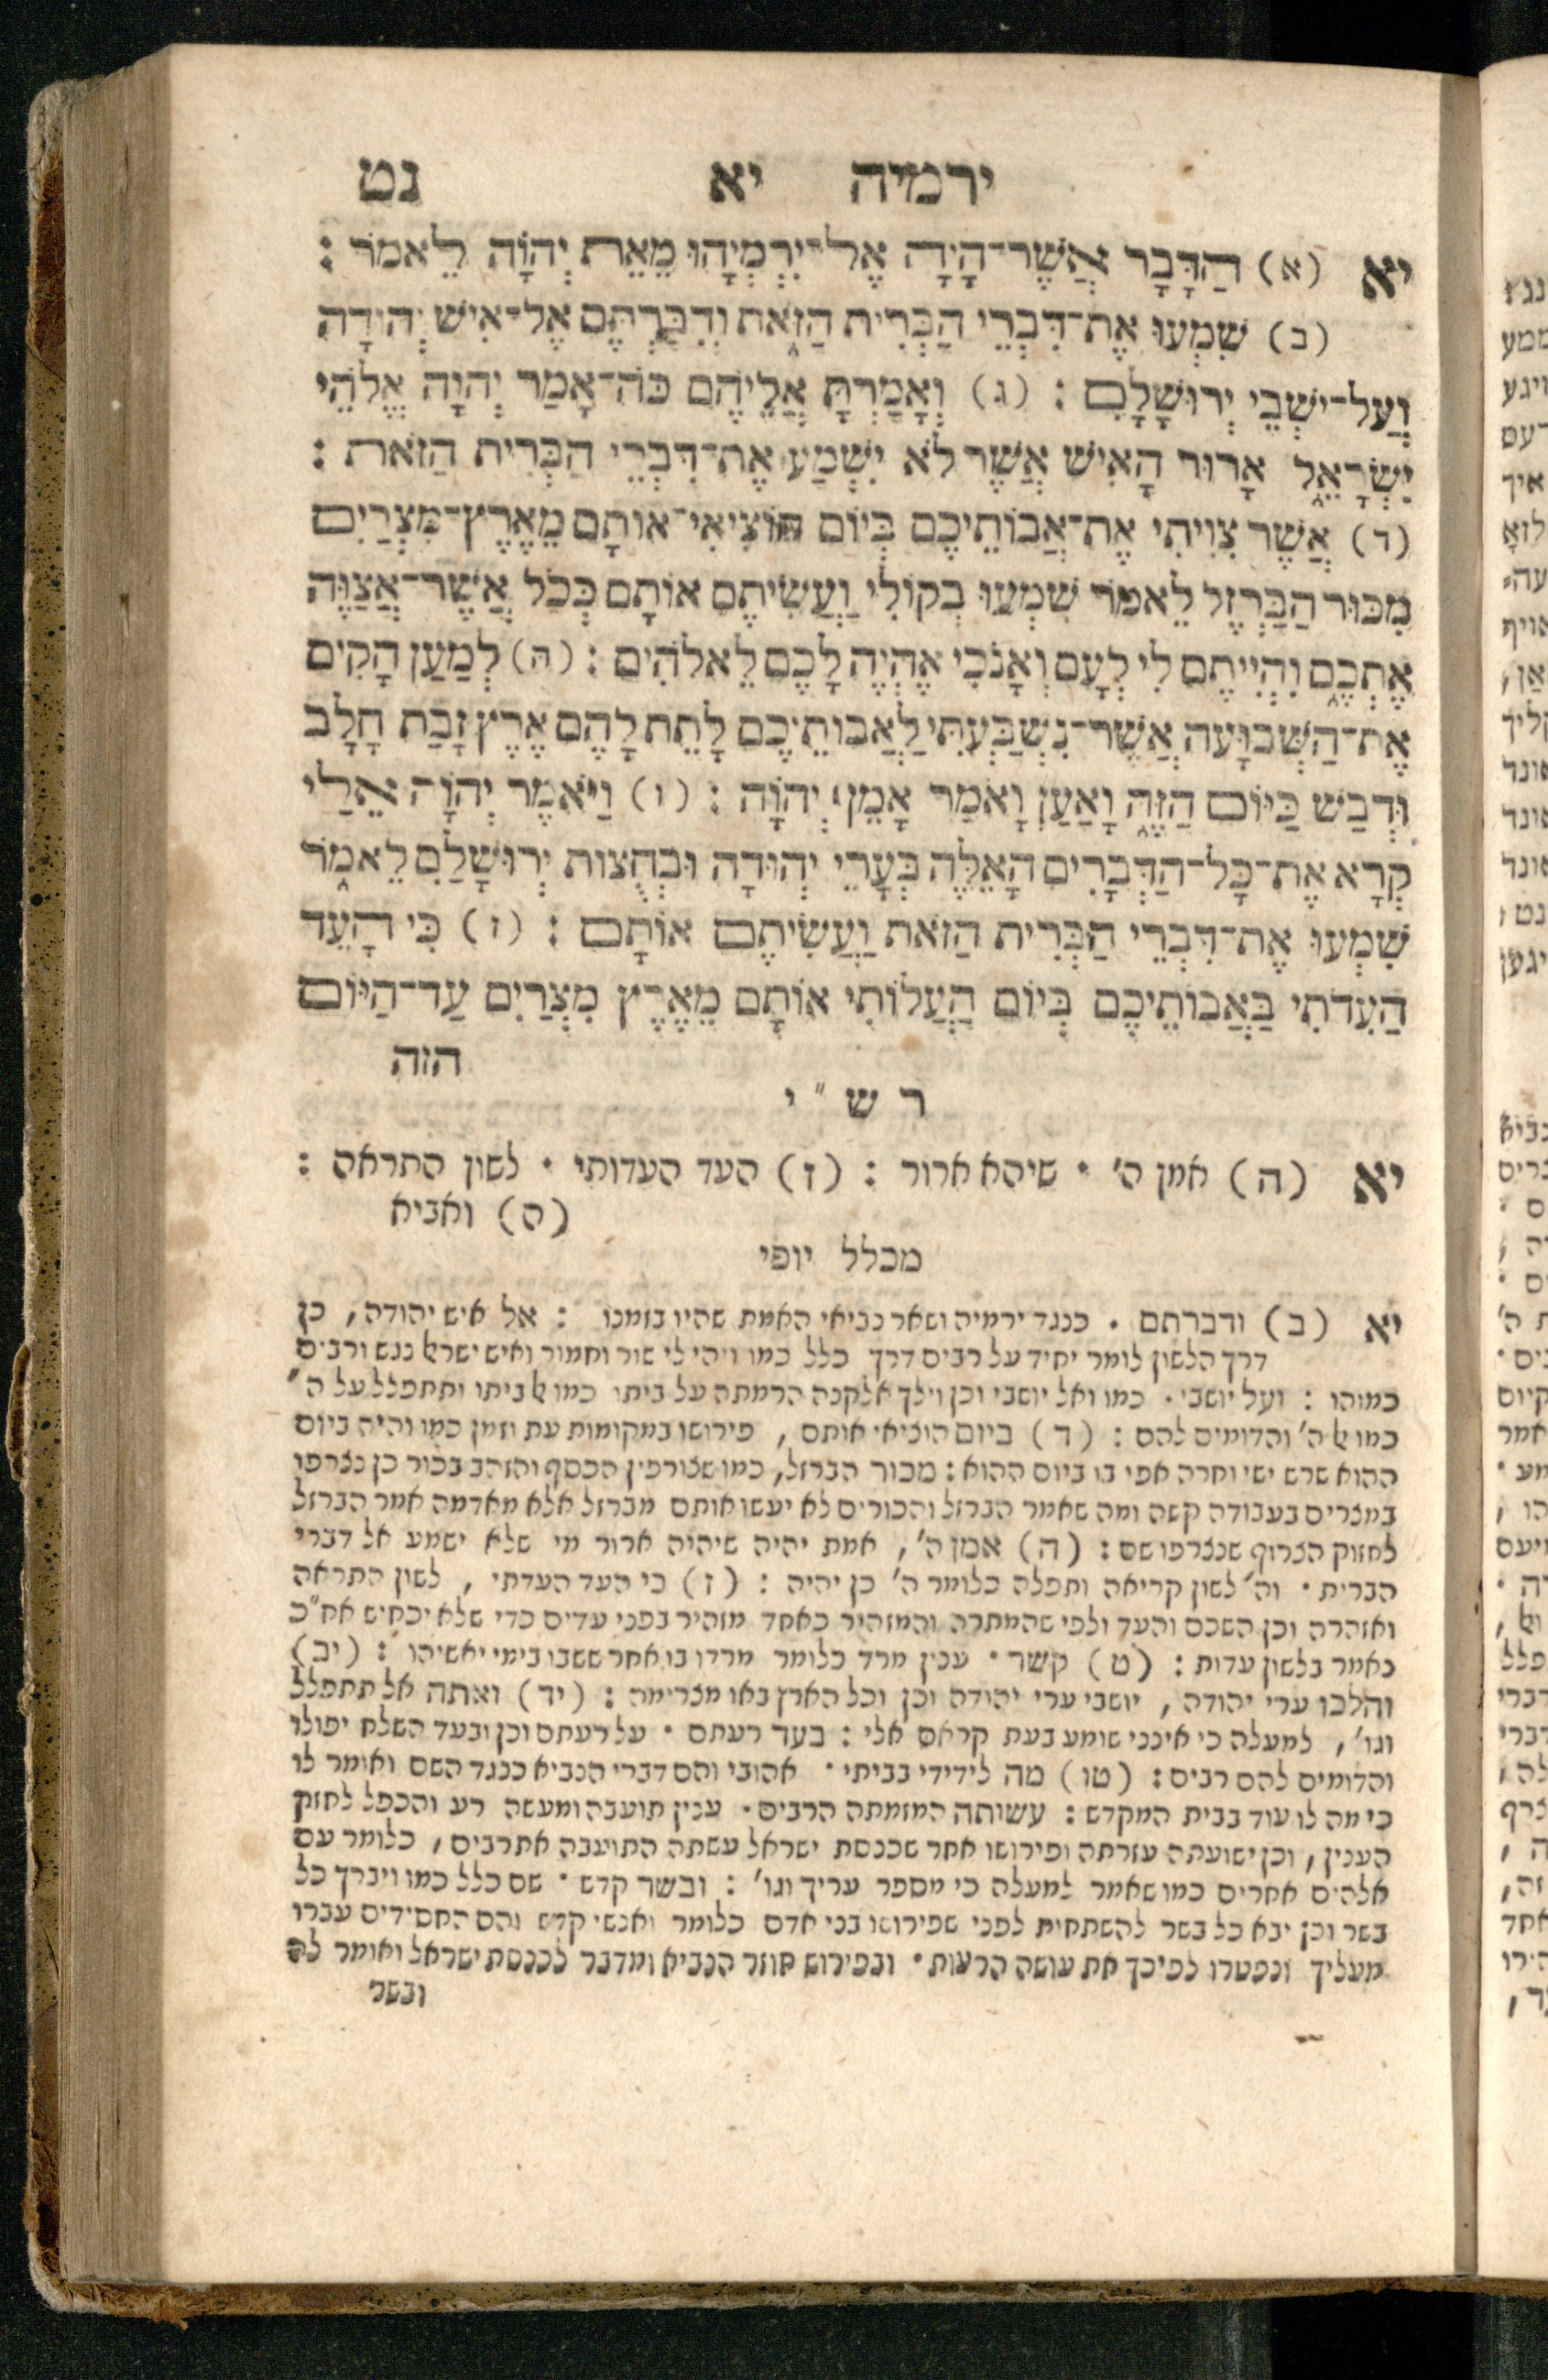 ירמיה יא נט
יא (א) הַדָּבָר אֲשֶׁר־הָיָה אֶל־יִרְמְיָהוּ מֵאֵת יְהוָה לֵאמֹר :
(ב) שִׁמְעוּ אֶת־דִּבְרֵי הַבְּרִית הַזֹּאת וְדִבַּרְתֶּם אֶל־אִישׁ יְהוּדָה
וְעַל־יֹשְׁבֵי יְרוּשָׁלָםִ : (ג) וְאָמַרְתָּ אֲלֵיהֶם כֹּה־אָמַר יְהוָה אֱלֹהֵי
יִשְׂרָאֵל אָרוּר הָאִישׁ אֲשֶׁר לֹא יִשְׁמַע אֶת־דִּבְרֵי הַבְּרִית הַזֹּאת :
(ד) אֲשֶׁר צִוִּיתִי אֶת־אֲבוֹתֵיכֶם בְּיוֹם הוֹצִיאִי־אוֹתָם מֵאֶרֶץ־מִצְרַיִם
מִכּוּר הַבַּרְזֶל לֵאמֹר שִׁמְעוּ בְקוֹלִי וַעֲשִׂיתֶם אוֹתָם כְּכֹל אֲשֶׁר־אֲצַוֶּה
אֶתְכֶם וִהְיִיתֶם לִי לְעָם וְאָנֹכִי אֶהְיֶה לָכֶם לֵאלֹהִים : (ה) לְמַעַן הָקִים
אֶת־הַשְּׁבוּעָה אֲשֶׁר־נִשְׁבַּעְתִּי לַאֲבוֹתֵיכֶם לָתֵת לָהֶם אֶרֶץ זָבַת חָלָב
וּדְבַשׁ כַּיּוֹם הַזֶּה וָאַעַן וָאֹמַר אָמֵן יְהוָה : (ו) וַיֹּאמֶר יְהוָה אֵלַי
קְרָא אֶת־כָּל־הַדְּבָרִים הָאֵלֶּה בְּעָרֵי יְהוּדָה וּבְחֻצוֹת יְרוּשָׁלַםִ לֵאמֹר
שִׁמְעוּ אֶת־דִּבְרֵי הַבְּרִית הַזֹּאת וַעֲשִׂיתֶם אוֹתָם : (ז) כִּי הָעֵד
הַעִדֹתִי בַּאֲבוֹתֵיכֶם בְּיוֹם הַעֲלוֹתִי אוֹתָם מֵאֶרֶץ מִצְרַיִם עַד־הַיּוֹם
הזה
ר ש " י
יא (ה) אמן ה' • שיהא ארור : (ז) העד העדותי • לשון התראה :
(ח) ואביא
מכלל יופי
יא (ב) ודברתם . כנגד ירמיה ושאר נביאי האמת שהיו בזמנו : אל איש יהודה, כן
דרך הלשון לומר יחיד על רבים דרך כלל כמו ויהי לי שור וחמור ואיש ישראל נגש ורבים
כמוהו : ועל יושבי . כמו ואל יושבי וכן וילך אלקנה הרמתה על ביתו כמו אל ביתו ותתפלל על ה'
כמו אל ה' והדומים להם : (ד) ביום הוציאי אותם , פירושו במקומות עת וזמן כמו והיה ביום
ההוא שרש ישי וחרה אפי בו ביום ההוא : מכור הברזל, כמו שצורפין הכסף והזהב בכור כן נצרפו
במצרים בעבודה קשה ומה שאמר הברזל והכורים לא יעשו אותם מברזל אלא מאדמה אמר הברזל
לחזוק הצרוף שנצרפו שם : (ה) אמן ה', אמת יהיה שיהיה ארור מי שלא ישמע אל דברי
הברית • וה' לשון קריאה ותפלה כלומר ה' כן יהיה : (ז) כי העד העדתי , לשון התראה
ואזהרה וכן השכם והעד ולפי שהמתרה והמזהיר כאחד מזהיר בפני עדים כדי שלא יכחיש אח"כ
נאמר בלשון עדות : (ט) קשר • ענין מרד כלומר מרדו בו אחר ששבו בימי יאשיהו : (יב)
והלכו ערי יהודה , יושבי ערי יהודה וכן וכל הארץ באו מצרימה : (יד) ואתה אל תתפלל
וגו' , למעלה כי אינני שומע בעת קראם אלי : בעד רעתם • על רעתם וכן ובעד השלח יפולו
והדומים להם רבים : (טו) מה לידידי בביתי • אהובי והם דברי הנביא כנגד השם ואומר לו
כי מה לו עוד בבית המקדש : עשותה המזמתה הרבים • ענין תועבה ומעשה רע והכפל לחזק
הענין , וכן ישועתה עזרתה ופירושו אחר שכנסת ישראל עשתה התועבה את רבים , כלומר עם
אלהים אחרים כמו שאמר למעלה כי מספר עריך וגו' : ובשר קדש • שם כלל כמו ויברך כל
בשר וכן יבא כל בשר להשתחות לפני שפירושו בני אדם כלומר ואנשי קדש והם החסידים עברו
מעליך ונפטרו לפיכך את עושה הרעות • ובפירוש חוזר הנביא ומדבר לכנסת ישראל ואומר לה
ובשר